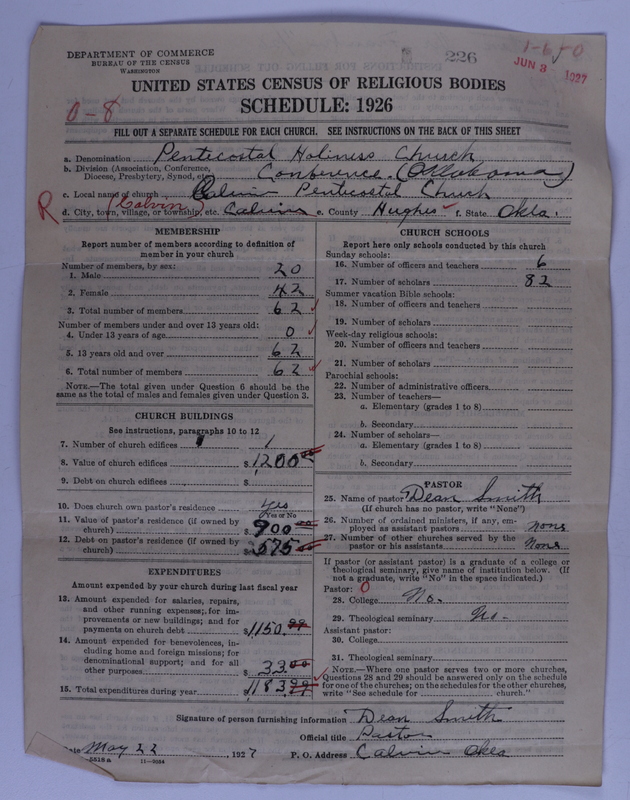 DEPARTMENT OF COMMERCE
BUREAU OF THE CENSUS
WASHINGTON
226
1-6 50
JUN 3 - 1927
UNITED STATES CENSUS OF RELIGIOUS BODIES
SCHEDULE: 1926
0-8
FILL OUT A SEPARATE SCHEDULE FOR EACH CHURCH. SEE INSTRUCTIONS ON THE BACK OF THIS SHEET
a. Denomination Pentecostal Holiness Church
b. Division (Association, Conference, Diocese, Presbytery, Synod, etc. Conference. (Oklahoma)
c. Local name of church Calvin Pentecostal Church
R (Calvin)
d. City, town, village, or township, etc. Calvin e. County Hughes f. State Okla.
MEMBERSHIP
Report number of members according to definition of
member in your church
Number of members, by sex:
1. Male 20
2. Female 42
3. Total number of members 62
Number of members under and over 13 years old:
4. Under 13 years of age 0
5. 13 years old and over 62
6. Total number of members 62
NOTE.—The total given under Question 6 should be the
same as the total of males and females given under Question 3.
CHURCH BUILDINGS
See instructions, paragraphs 10 to 12
7. Number of church edifices 1
8. Value of church edifices $1200.00
9. Debt on church edifices $
10. Does church own pastor's residence yes
Yes or No
11. Value of pastor's residence (if owned by
church) $900.00
12. Debt on pastor's residence (if owned by
church) $575.00
EXPENDITURES
Amount expended by your church during last fiscal year
13. Amount expended for salaries, repairs,
and other running expenses; for im-
provements or new buildings; and for
payments on church debt $1150.99
14. Amount expended for benevolences, in-
cluding home and foreign missions; for
denominational support; and for all
other purposes $33.00
15. Total expenditures during year $1183.99
CHURCH SCHOOLS
Report here only schools conducted by this church
Sunday schools:
16. Number of officers and teachers 6
17. Number of scholars 82
Summer vacation Bible schools:
18. Number of officers and teachers
19. Number of scholars
Week-day religious schools:
20. Number of officers and teachers
21. Number of scholars
Parochial schools:
22. Number of administrative officers
23. Number of teachers—
a. Elementary (grades 1 to 8)
b. Secondary
24. Number of scholars—
a. Elementary (grades 1 to 8)
b. Secondary
PASTOR
25. Name of pastor Dean Smith
(If church has no pastor, write "None")
26. Number of ordained ministers, if any, em-
ployed as assistant pastors none
27. Number of other churches served by the
pastor or his assistants None
If pastor (or assistant pastor) is a graduate of a college or
theological seminary, give name of institution below. (If
not a graduate, write "No" in the space indicated.)
Pastor: 0
28. College No.
29. Theological seminary No.
Assistant pastor:
30. College
31. Theological seminary
NOTE.—Where one pastor serves two or more churches,
Questions 28 and 29 should be answered only on the schedule
for one of the churches; on the schedules for the other churches,
write "See schedule for church."
Signature of person furnishing information Dean Smith
Official title Pastor
Date May 22, 1927 P. O. Address Calvin Okla